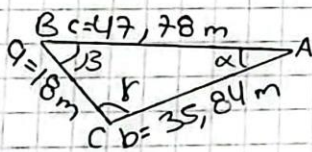 B c=47,78 m A
a=18m β α
γ
C b=35,84 m